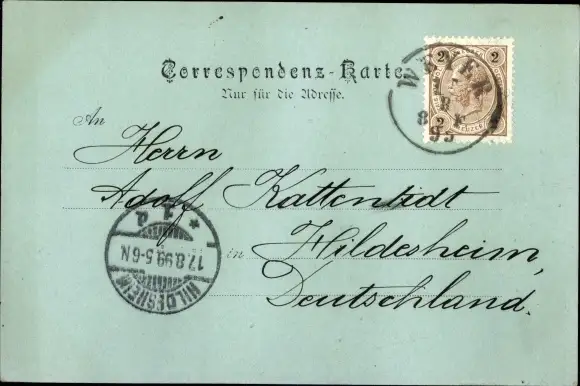 Correspondenz-Karte.
Nur für die Adresse.
2 2
WEYER
8
2 KREUZER
An
Herrn
Adolf Kattentidt
in Hildesheim,
Deutschland.
17.8.99.5-6N.
HILDESHEIM